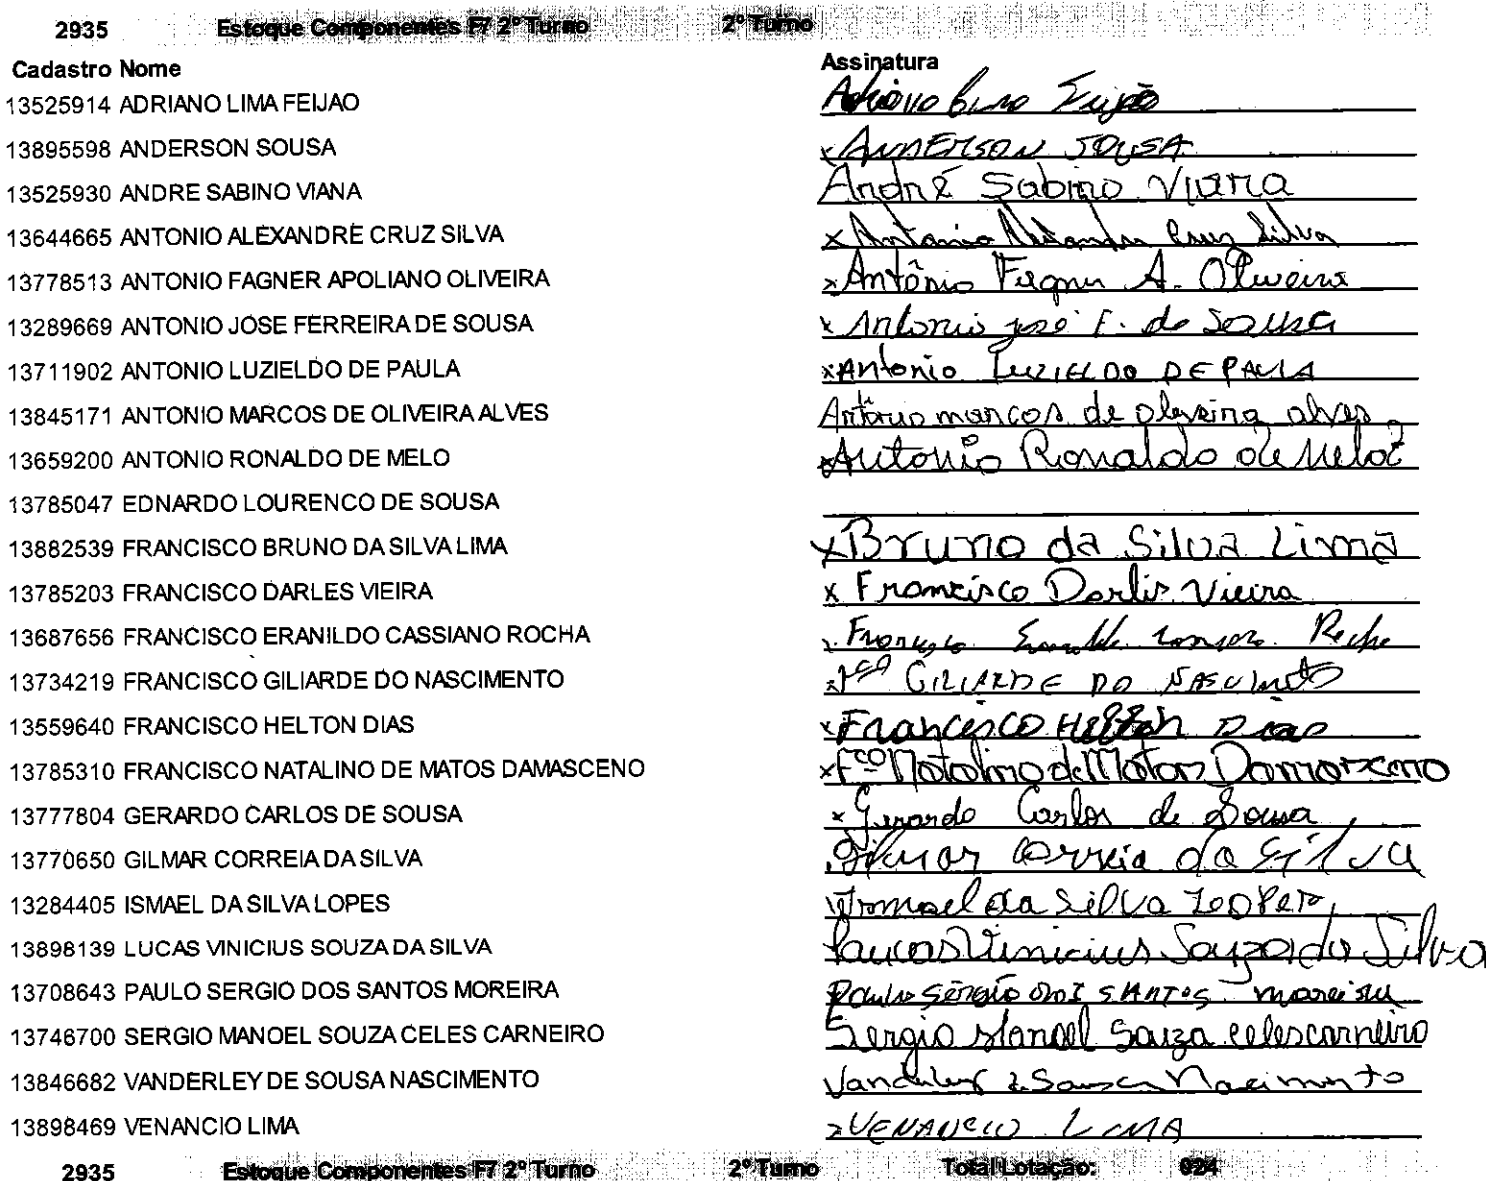 2935 Estoque Componentes F7 2º Turno 2º Turno
Cadastro Nome Assinatura
13525914 ADRIANO LIMA FEIJAO Adriano Lima Feijão
13895598 ANDERSON SOUSA x ANDERSON SOUSA
13525930 ANDRE SABINO VIANA André Sabino Viana
13644665 ANTONIO ALEXANDRE CRUZ SILVA x Antonio Alexandre Cruz Silva
13778513 ANTONIO FAGNER APOLIANO OLIVEIRA x Antônio Fagner A. Oliveira
13289669 ANTONIO JOSE FERREIRA DE SOUSA x Antonio josé F. de Sousa
13711902 ANTONIO LUZIELDO DE PAULA x Antonio LUZIELDO DE PAULA
13845171 ANTONIO MARCOS DE OLIVEIRA ALVES Antônio marcos de oliveira alves
13659200 ANTONIO RONALDO DE MELO x Antonio Ronaldo de Melo
13785047 EDNARDO LOURENCO DE SOUSA
13882539 FRANCISCO BRUNO DA SILVA LIMA x Bruno da Silva Lima
13785203 FRANCISCO DARLES VIEIRA x Francisco Darlis Vieira
13687656 FRANCISCO ERANILDO CASSIANO ROCHA Francisco Rocha
13734219 FRANCISCO GILIARDE DO NASCIMENTO x Fco GILIARDE DO NASCIMENTO
13559640 FRANCISCO HELTON DIAS x Francisco Helton Dias
13785310 FRANCISCO NATALINO DE MATOS DAMASCENO x Fco Natalino de Matos Damasceno
13777804 GERARDO CARLOS DE SOUSA x Gerardo Carlos de Sousa
13770650 GILMAR CORREIA DA SILVA Gilmar Correia da Silva
13284405 ISMAEL DA SILVA LOPES Ismael da Silva Lopes
13898139 LUCAS VINICIUS SOUZA DA SILVA Lucas Vinicius Souza da Silva
13708643 PAULO SERGIO DOS SANTOS MOREIRA Paulo Sérgio dos SANTOS moreira
13746700 SERGIO MANOEL SOUZA CELES CARNEIRO Sergio Manoel Souza celes carneiro
13846682 VANDERLEY DE SOUSA NASCIMENTO Vanderley de Sousa Nascimento
13898469 VENANCIO LIMA x VENANCIO LIMA
2935 Estoque Componentes F7 2º Turno 2º Turno Total Lotação: 024